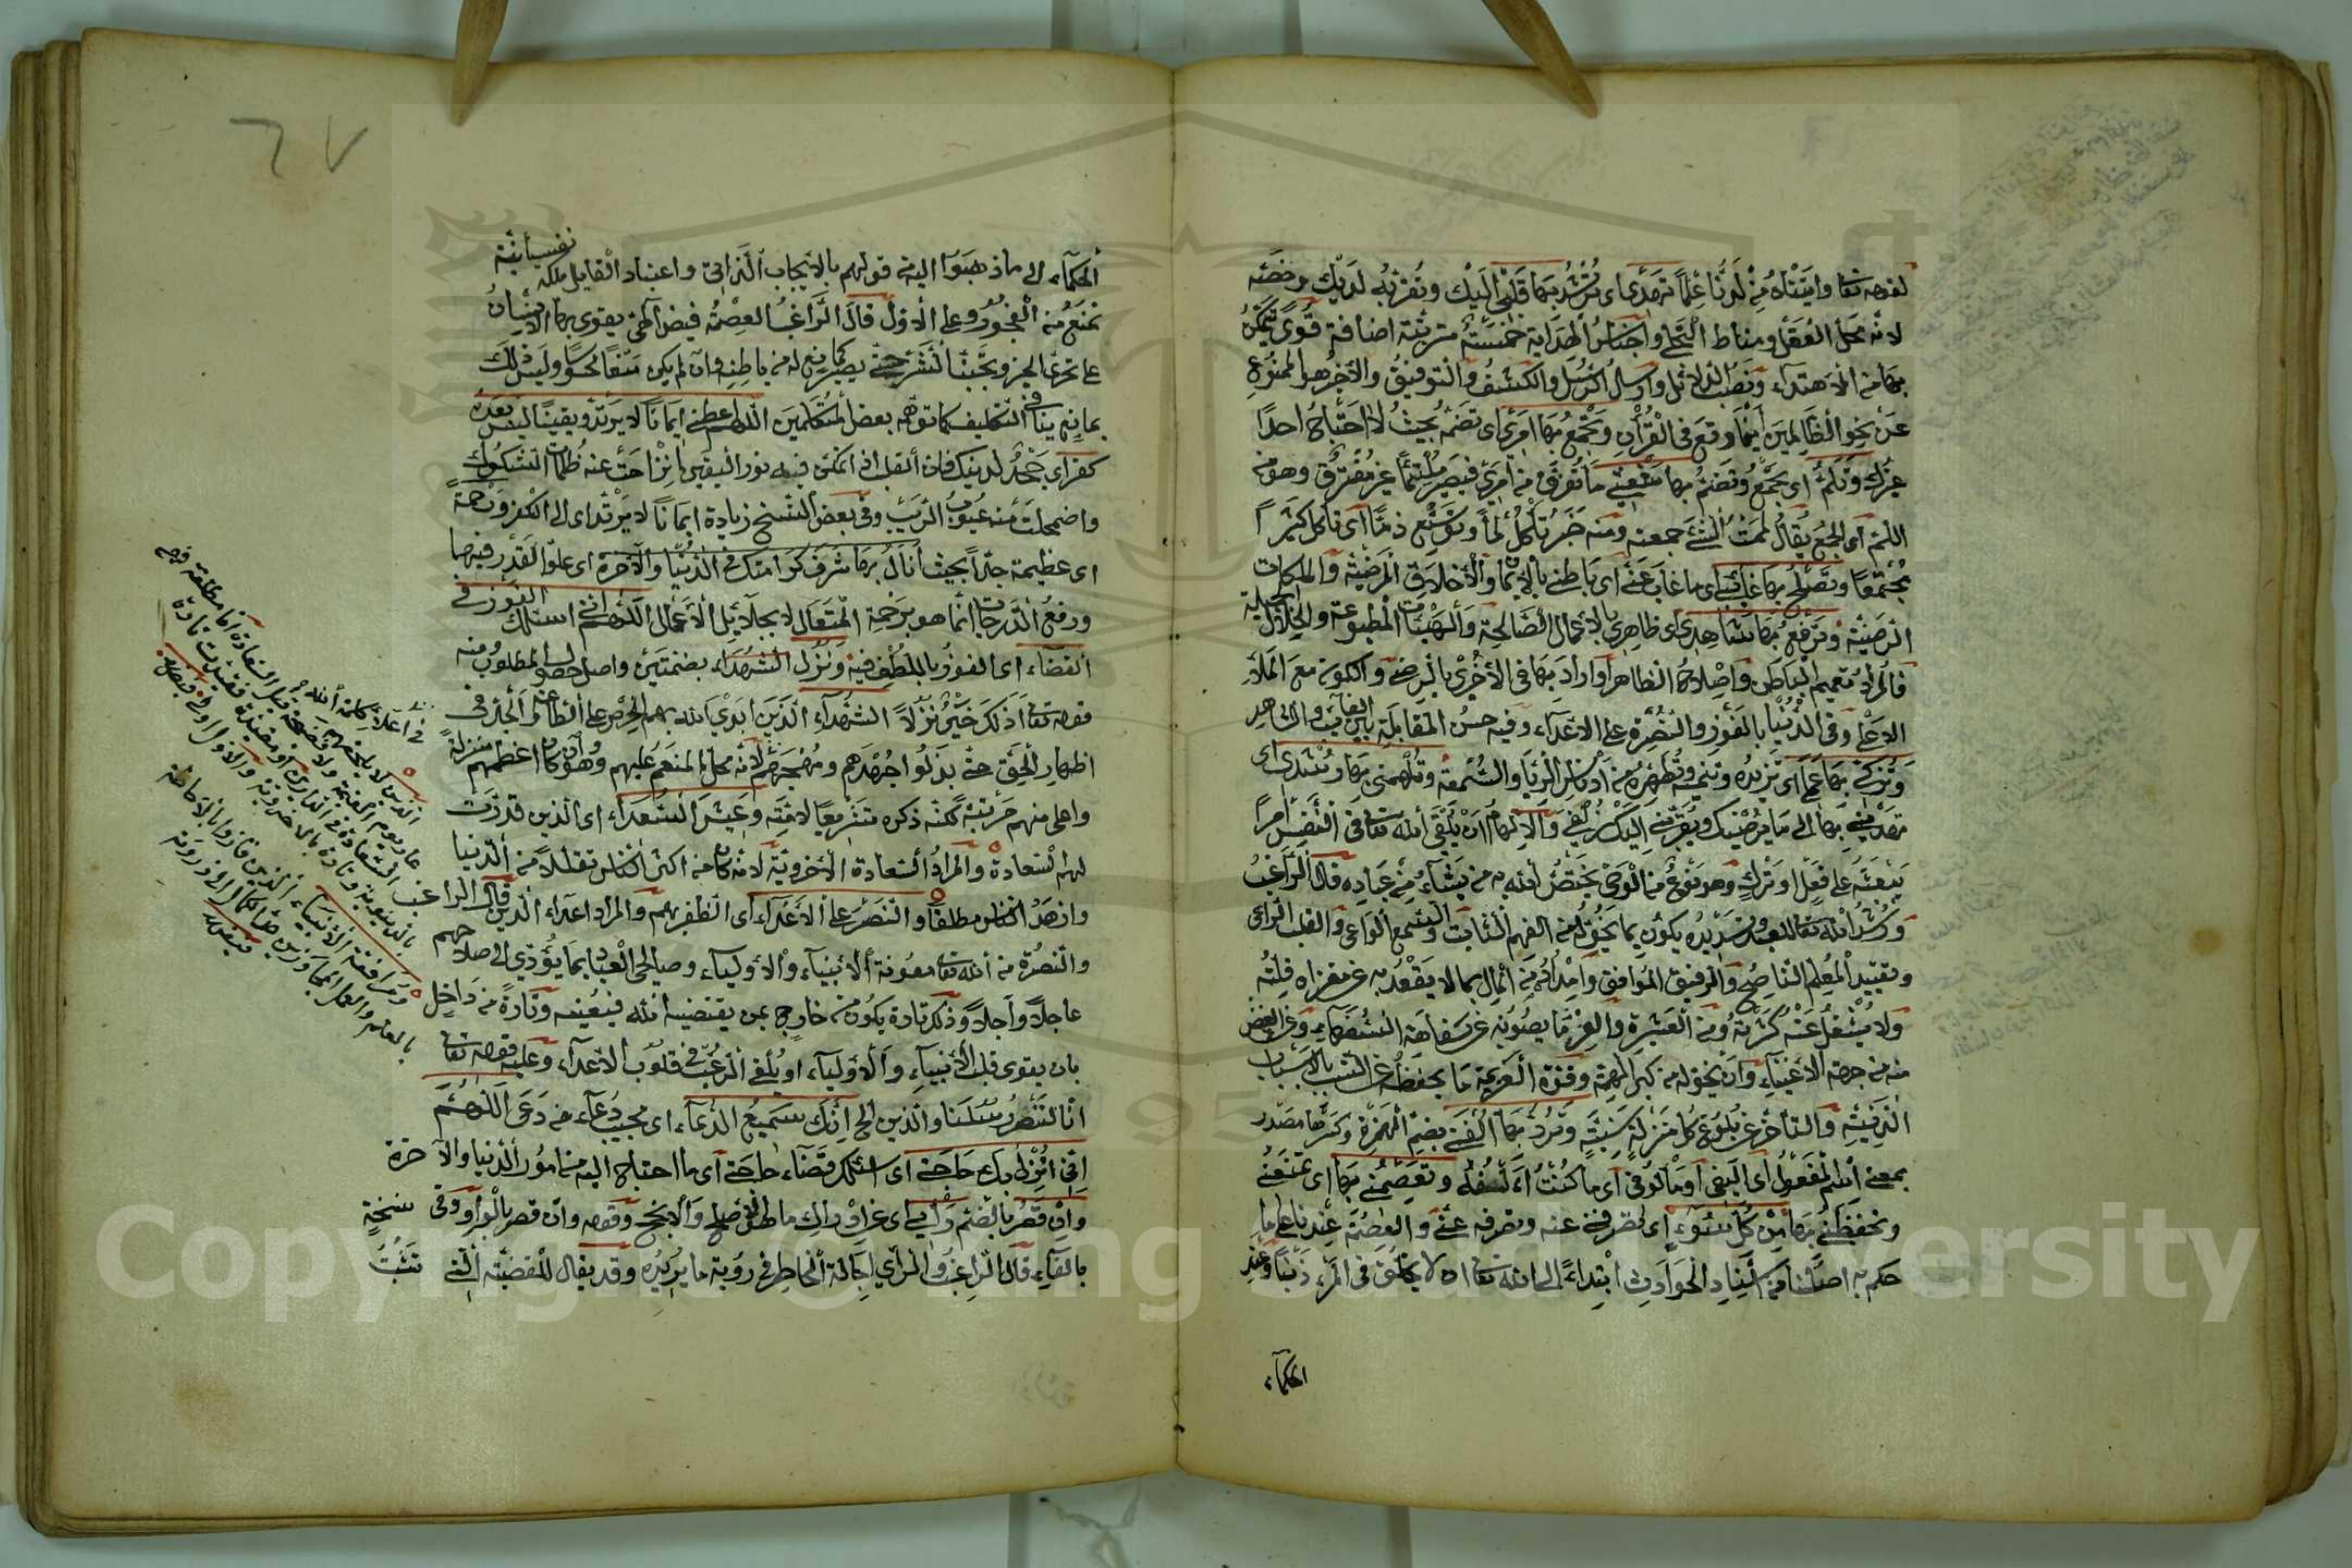 لقوله تعا وآتيناه من لدنا علما تهدي اى ترشد بها قلبي اليك وتقربه لديك وخصّه
لانه محل العقل ومناط التجلي واجناس الهداية خمسة مترتبة اضافة قوى يتمكن
بها من الاهتداء ونصب الدلائل وارسال الرسل والكشف والتوفيق والآخر هو الممنوع
عن نحو الظالمين اينما وقع فى القرآن وتجمع بها امرى اى تضمه بحيث لا احتاج احدا
غيرك وتلم اى تجمع وتضم بها شعثي ما تفرق من امرى فيصير ملتئما غير مفترق وهو من
اللم اى الجمع يقال لممت الشئ جمعته ومنه خبر تأكل لما وتوسع ذما اى تأكل كثيرا
مجتمعا وتصلح بها غائبي اى ما غاب عني اى باطني بالايمان والاخلاق المرضية والملكات
الرضية وترفع بها شاهدى اى ظاهرى بالاعمال الصالحة والهيئات المطبوعة والخلال الجميلة
فالمراد تعميم الباطن واصلاح الظاهر او اراد بها فى الاخرى بالرضى والكون مع الملأ
الاعلى وفى الدنيا بالفوز والنصرة على الاعداء وفيه حسن المقابلة بين الغائب والشاهد
وتزكي بها عملى اى تزيده وتنميه وتطهره من ادناس الريا والسمعة وتلهمني بها رشدى اى
تهديني بها الى ما يرضيك ويقربني اليك زلفى والالهام ان يلقى الله تعا فى النفس امرا
يبعثه على فعل او ترك وهو نوع من الوحى يختص الله به من يشاء من عباده قال الراغب
ورشد الله تعا للعبد تسديده يكون بما يخوله من الفهم الثاقب والسمع الواعى والقلب الراعى
وتقييد المعلم الناصح والرفيق الموافق وامداده من المال بما لا يقعد به عن مغزاه قلته
ولا يشغل عنه كثرته ومن العشيرة والعز ما يصونه عن سفاهة السفهاء وعن الغض
منه من جهة الاغنياء وان يخوله من كبر الهمة وقوة العزيمة ما يحفظه عن التسبب بالاسباب
الدنية والتأخر عن بلوغ كل منزلة سنية وترد بها الفتي بضم الهمزة وكسرها مصدر
بمعنى اسم المفعول اى اليفى او مألوفى اى ما كنت آلفه وتعصمني بها اى تمنعني
وتحفظني بها من كل سوء اى تصرفني عنه وتصرفه عني والعصمة عندنا على ما
حكم به اصلنا من اسناد الحوادث ابتداء الى الله تعا ان لا يخلق فى المرء ذنبا وعند
الحكماء
٦٧
الحكماء الى ما ذهبوا اليه من قولهم بالايجاب الذاتى واعتبار القابل ملكة نفسانية
تمنع من الفجور وعلى الاول قال الراغب العصمة فيض آلهى يقوى بها الانسان
على تحرى الخير وتجنب الشر حتى يصير كمانع له من باطنه وان لم يكن منعا محسوسا وليس ذلك
بمانع ينافى التكليف كما توهمه بعض المتكلمين اللهم اعطني ايمانا لا يرتد ويقينا ليس بعده
كفر اى جحد لدينك فان القلب اذا تمكن فيه نور اليقين انزاحت عنه ظلمات الشكوك
واضمحلت منه غيوب الريب وفى بعض النسخ زيادة ايمانا لا يرتد اى الى الكفر ورحمة
اى عظيمة جدا بحيث انال بها شرف كرامتك فى الدنيا والآخرة اى علو القدر فيهما
ورفع الدرجات انما هو برحمة المتعال لا بجلائل الاعمال اللهم انى اسئلك الفوز فى
القضاء اى الفوز باللطف فيه ونزل الشهداء بضمتين واصله حصول المطلوب ومنه
قوله تعا اذلك خير نزلا الشهداء الذين ابدى بالله بهم الحرص على الطاعة والجد فى
اظهار الحق حتى بذلوا جهدهم ومهجتهم لانه محل المنعم عليهم وهو وان كان اعظمهم منزلة
واعلى منهم مرتبة لكنه ذكره تشريعا لامته وعيش السعداء اى الذين قدرت
لهم السعادة والمراد السعادة الاخروية لانه كان من اكثر الناس تقللا من الدنيا
وازهد الناس مطلقا والنصر على الاعداء اى الظفر بهم والمراد اعداء الدين قال الراغب
والنصرة من الله تعا معونة الانبياء والاولياء وصالحى العباد بما يؤدى الى صلاحهم
عاجلا وآجلا وذلك تارة يكون من خارج بمن يقتضيه الله فيعينه وتارة من داخل
بان يقوى قلب الانبياء والاولياء او يلقى الرعب فى قلوب الاعداء وعليه قوله تعا
انا لننصر رسلنا والذين الخ انك سميع الدعاء اى مجيب دعاء من دعى اللهم
انى انزل بك حاجتي اى اسئلك قضاء حاجتى اى ما احتاج اليه من امور الدنيا والآخرة
وان قصر بالضم رأيي اى عن ادراك ما هو الاصلح والانجح وقوله وان قصر بالواو وفى نسخة
بالفاء قال الراغب والرأى اجالة الخاطر فى رؤية ما يريده وقد يقال للقضية التي تثبت
فى اعلاء كلمة الله
السعادة فى الدارين
ومرافقة الانبياء